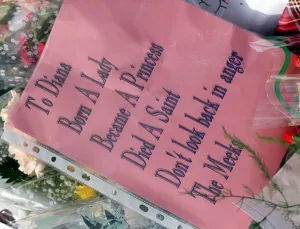 To Diana
Born A Lady
Became A Princess
Died A Saint
Don't look back in anger
The Meeks